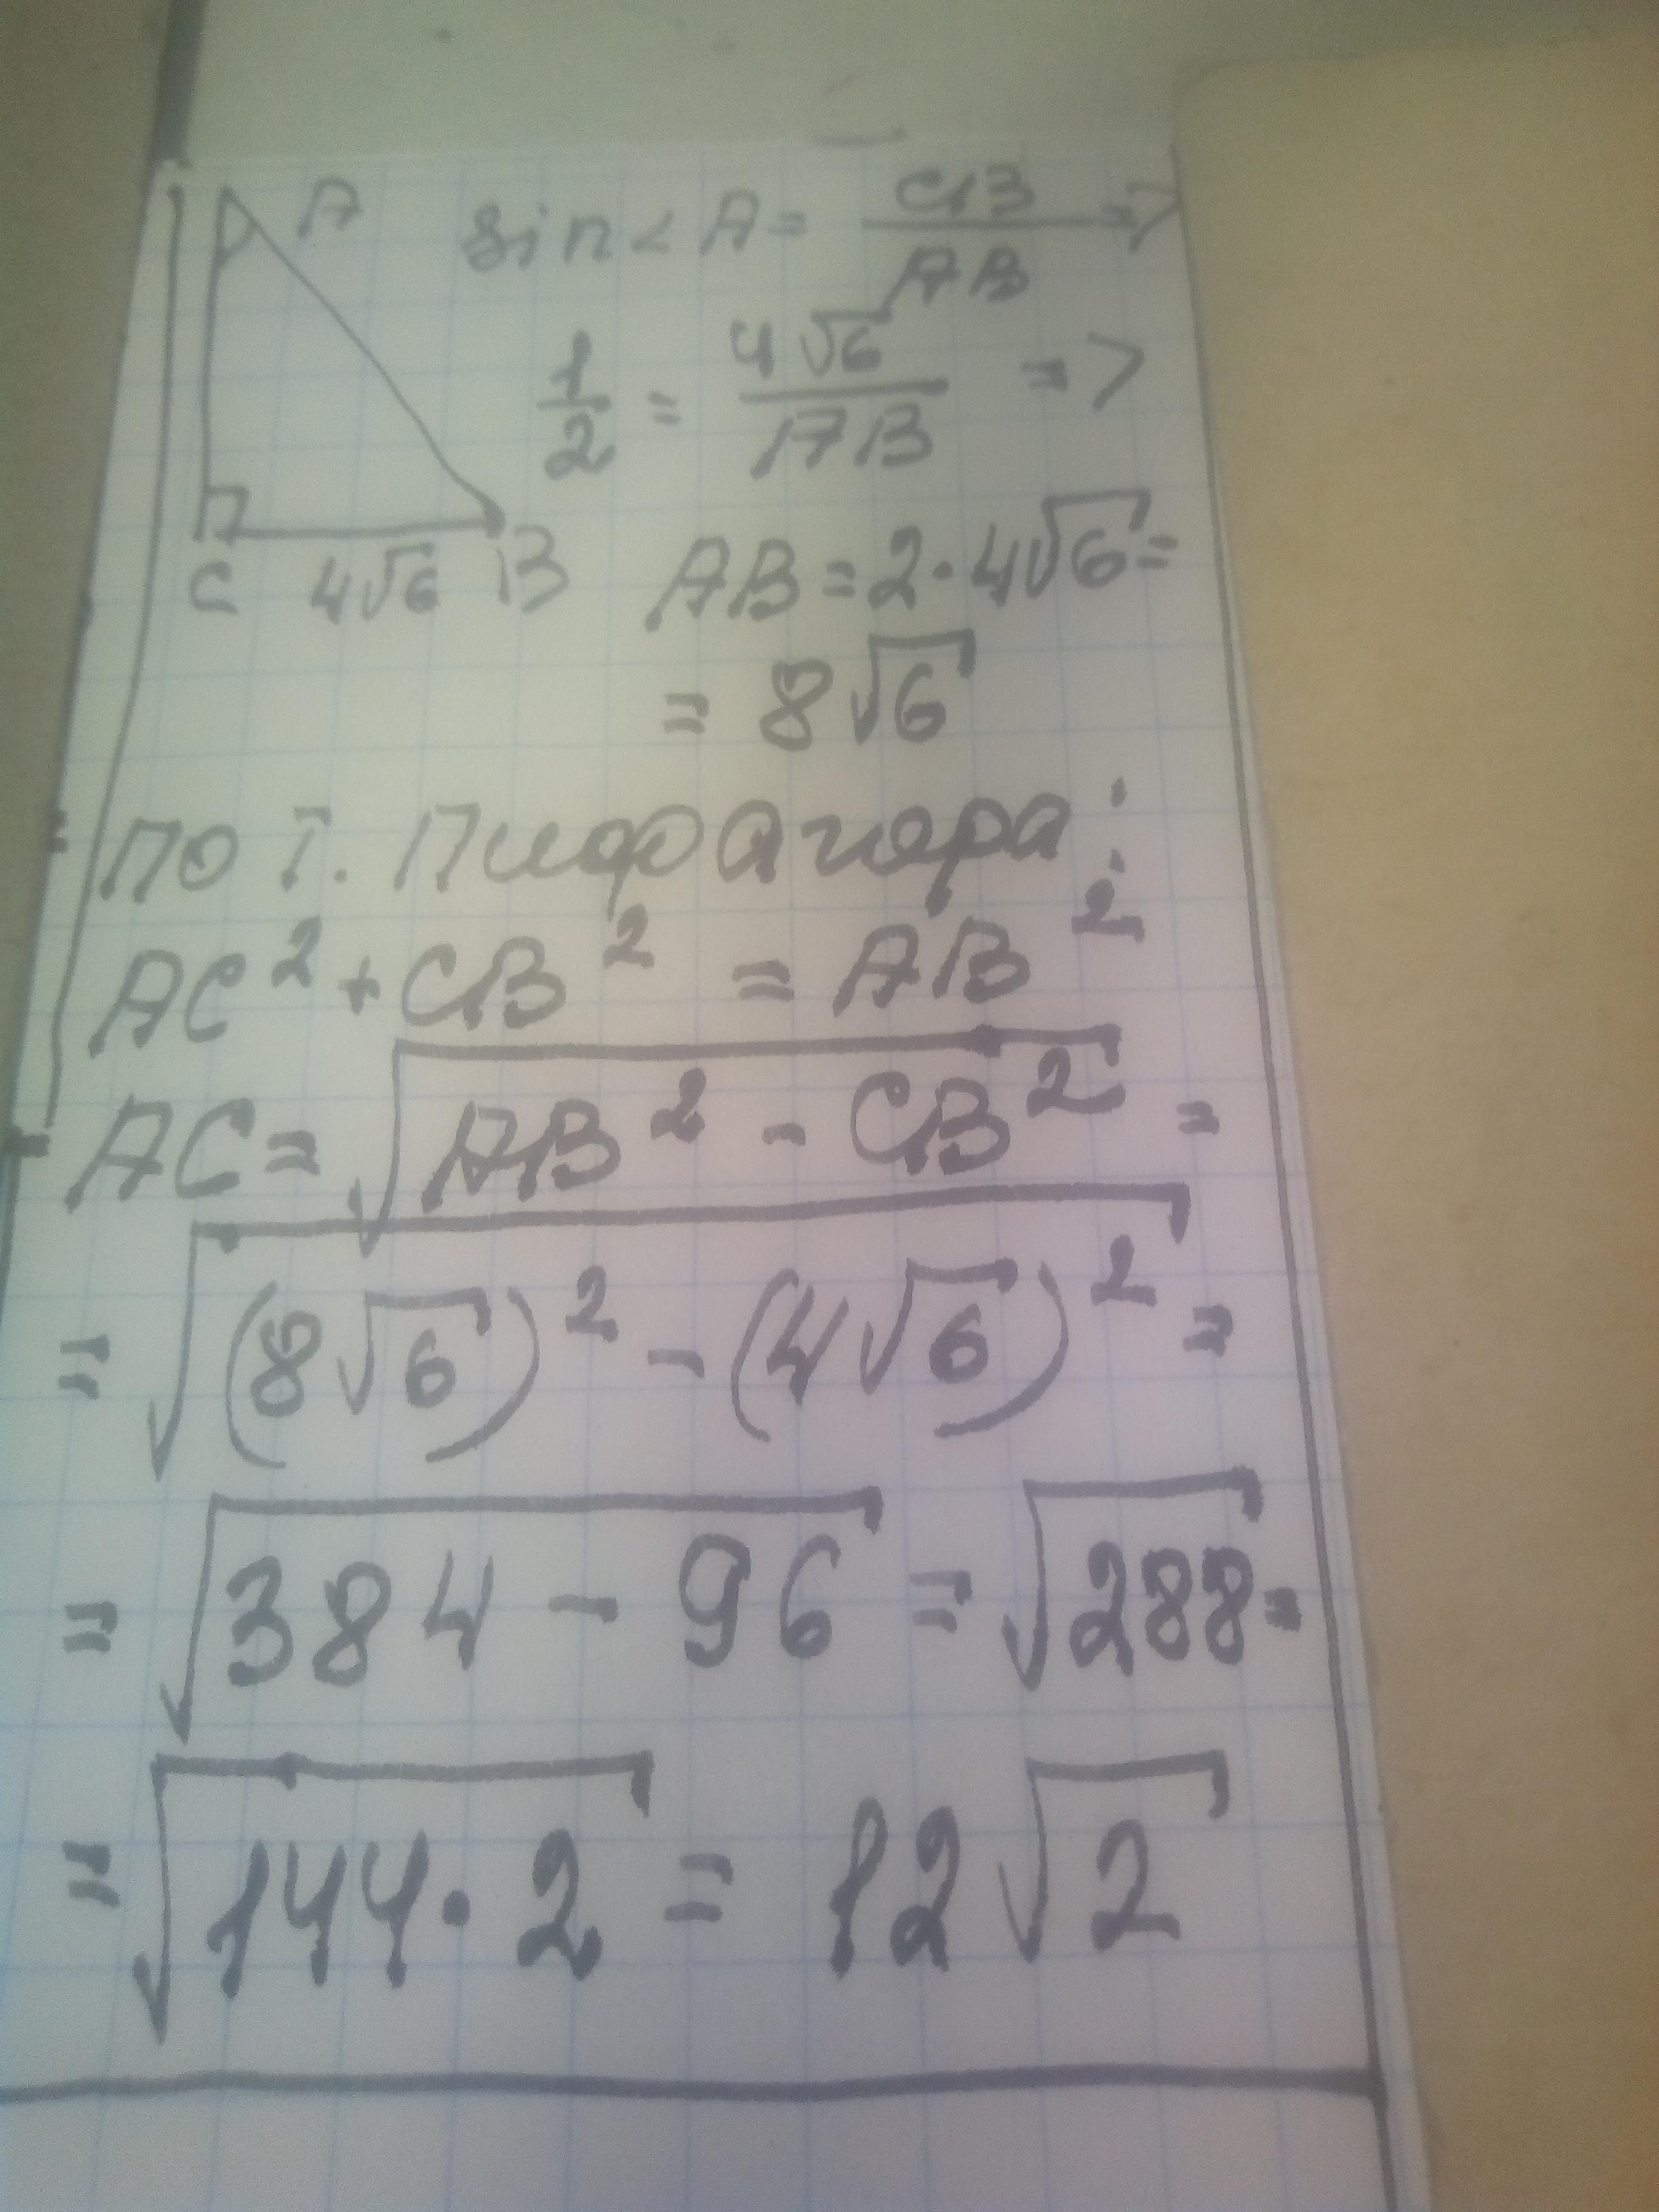 A
sin < A = CB / AB =>
1/2 = 4√6 / AB =>
C 4√6 B
AB = 2 · 4√6 =
= 8√6
по т. Пифагора:
AC² + CB² = AB²
AC = √(AB² - CB²) =
= √((8√6)² - (4√6)²) =
= √(384 - 96) = √288 =
= √(144 · 2) = 12√2